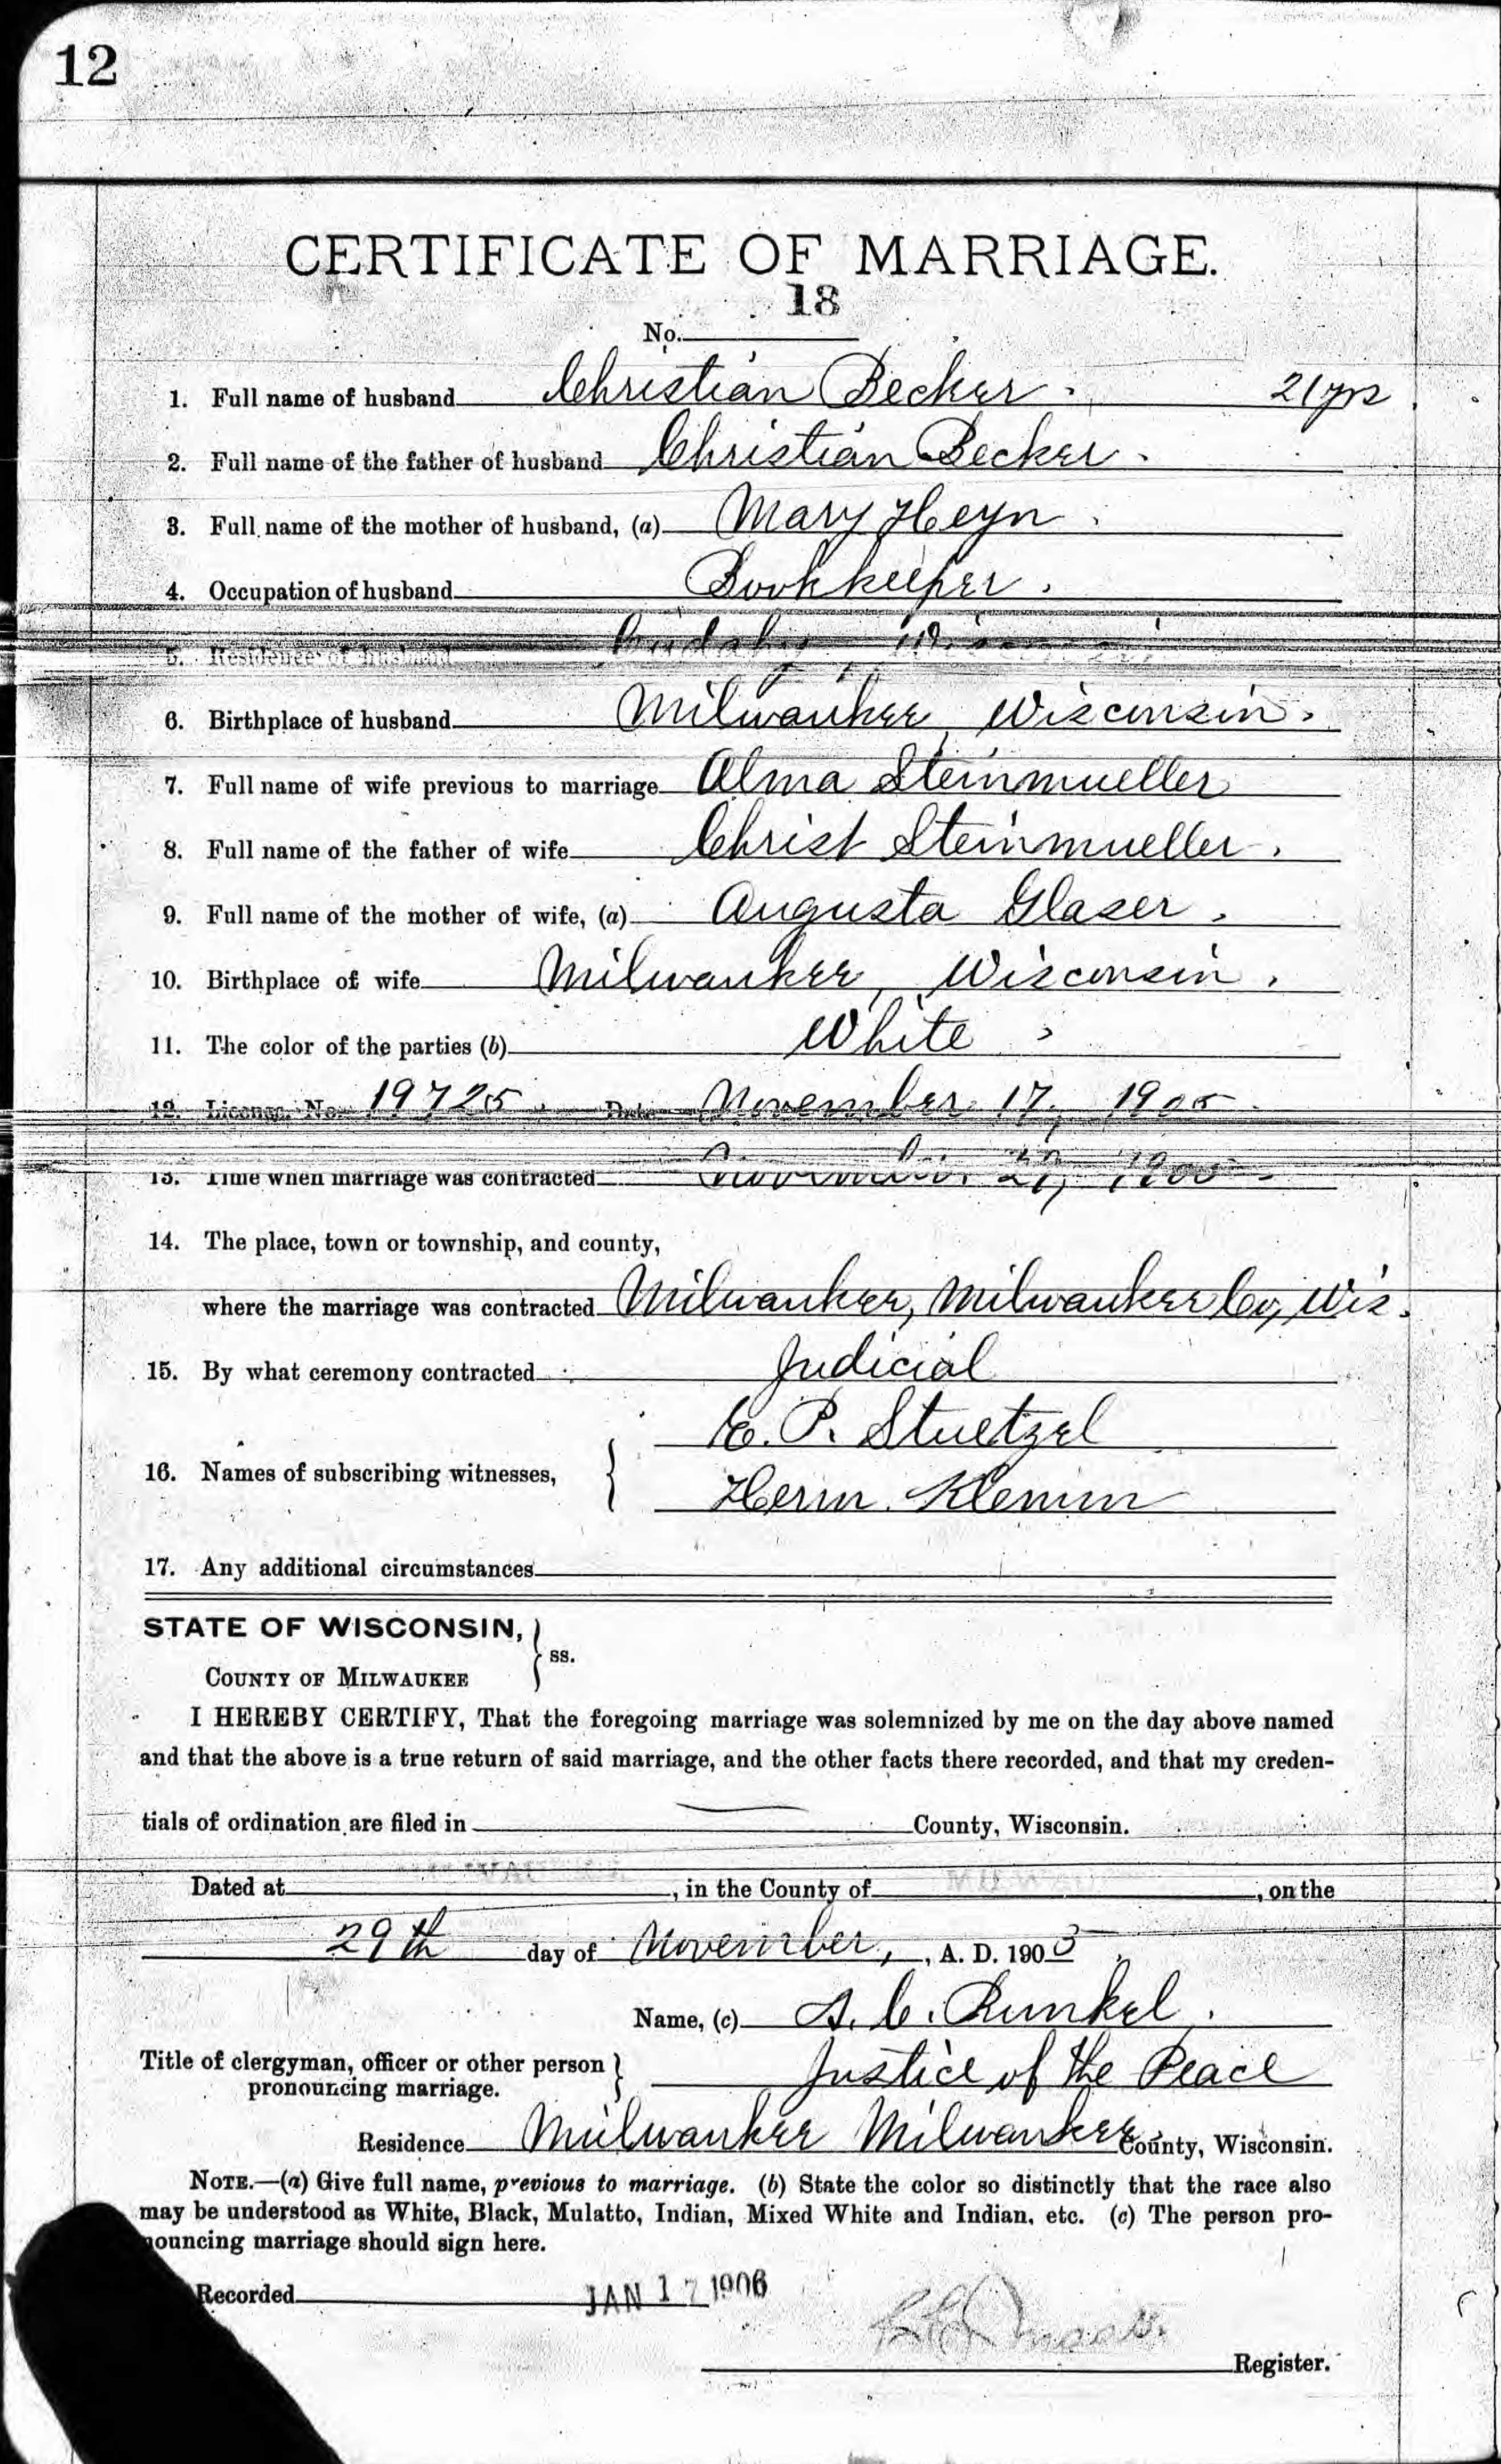 12
CERTIFICATE OF MARRIAGE.
18
No.
1. Full name of husband Christian Becker. 21 yrs
2. Full name of the father of husband Christian Becker.
3. Full name of the mother of husband, (a) Mary Heyn.
4. Occupation of husband Bookkeeper.
5. Residence of husband Cudahy Wisconsin
6. Birthplace of husband Milwaukee, Wisconsin.
7. Full name of wife previous to marriage Alma Steinmueller
8. Full name of the father of wife Christ Steinmueller.
9. Full name of the mother of wife, (a) Augusta Glaser.
10. Birthplace of wife Milwaukee, Wisconsin.
11. The color of the parties (b) White
12. License No. 19725. Date November 17, 1905.
13. Time when marriage was contracted November 1905
14. The place, town or township, and county,
where the marriage was contracted Milwaukee, Milwaukee Co, Wis.
15. By what ceremony contracted Judicial
E. P. Stuetzel
16. Names of subscribing witnesses, {
Herm. Klemm
17. Any additional circumstances
STATE OF WISCONSIN, }
ss.
COUNTY OF MILWAUKEE
I HEREBY CERTIFY, That the foregoing marriage was solemnized by me on the day above named
and that the above is a true return of said marriage, and the other facts there recorded, and that my creden-
tials of ordination are filed in County, Wisconsin.
Dated at , in the County of MILWAU , on the
29th day of November, , A. D. 1905
Name, (c) A. C. Runkel.
Title of clergyman, officer or other person } Justice of the Peace
pronouncing marriage.
Residence Milwaukee Milwaukee County, Wisconsin.
NOTE.—(a) Give full name, previous to marriage. (b) State the color so distinctly that the race also
may be understood as White, Black, Mulatto, Indian, Mixed White and Indian, etc. (c) The person pro-
nouncing marriage should sign here.
Recorded JAN 17 1906
Register.